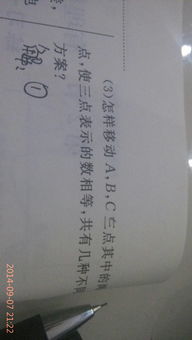 (3)怎样移动A,B,C三点其中的
点,使三点表示的数相等,共有几种不
方案?
解: ①
2014-09-07 21:22